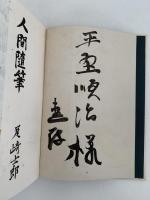 平野順治様
恵存
人間随筆
尾崎士郎